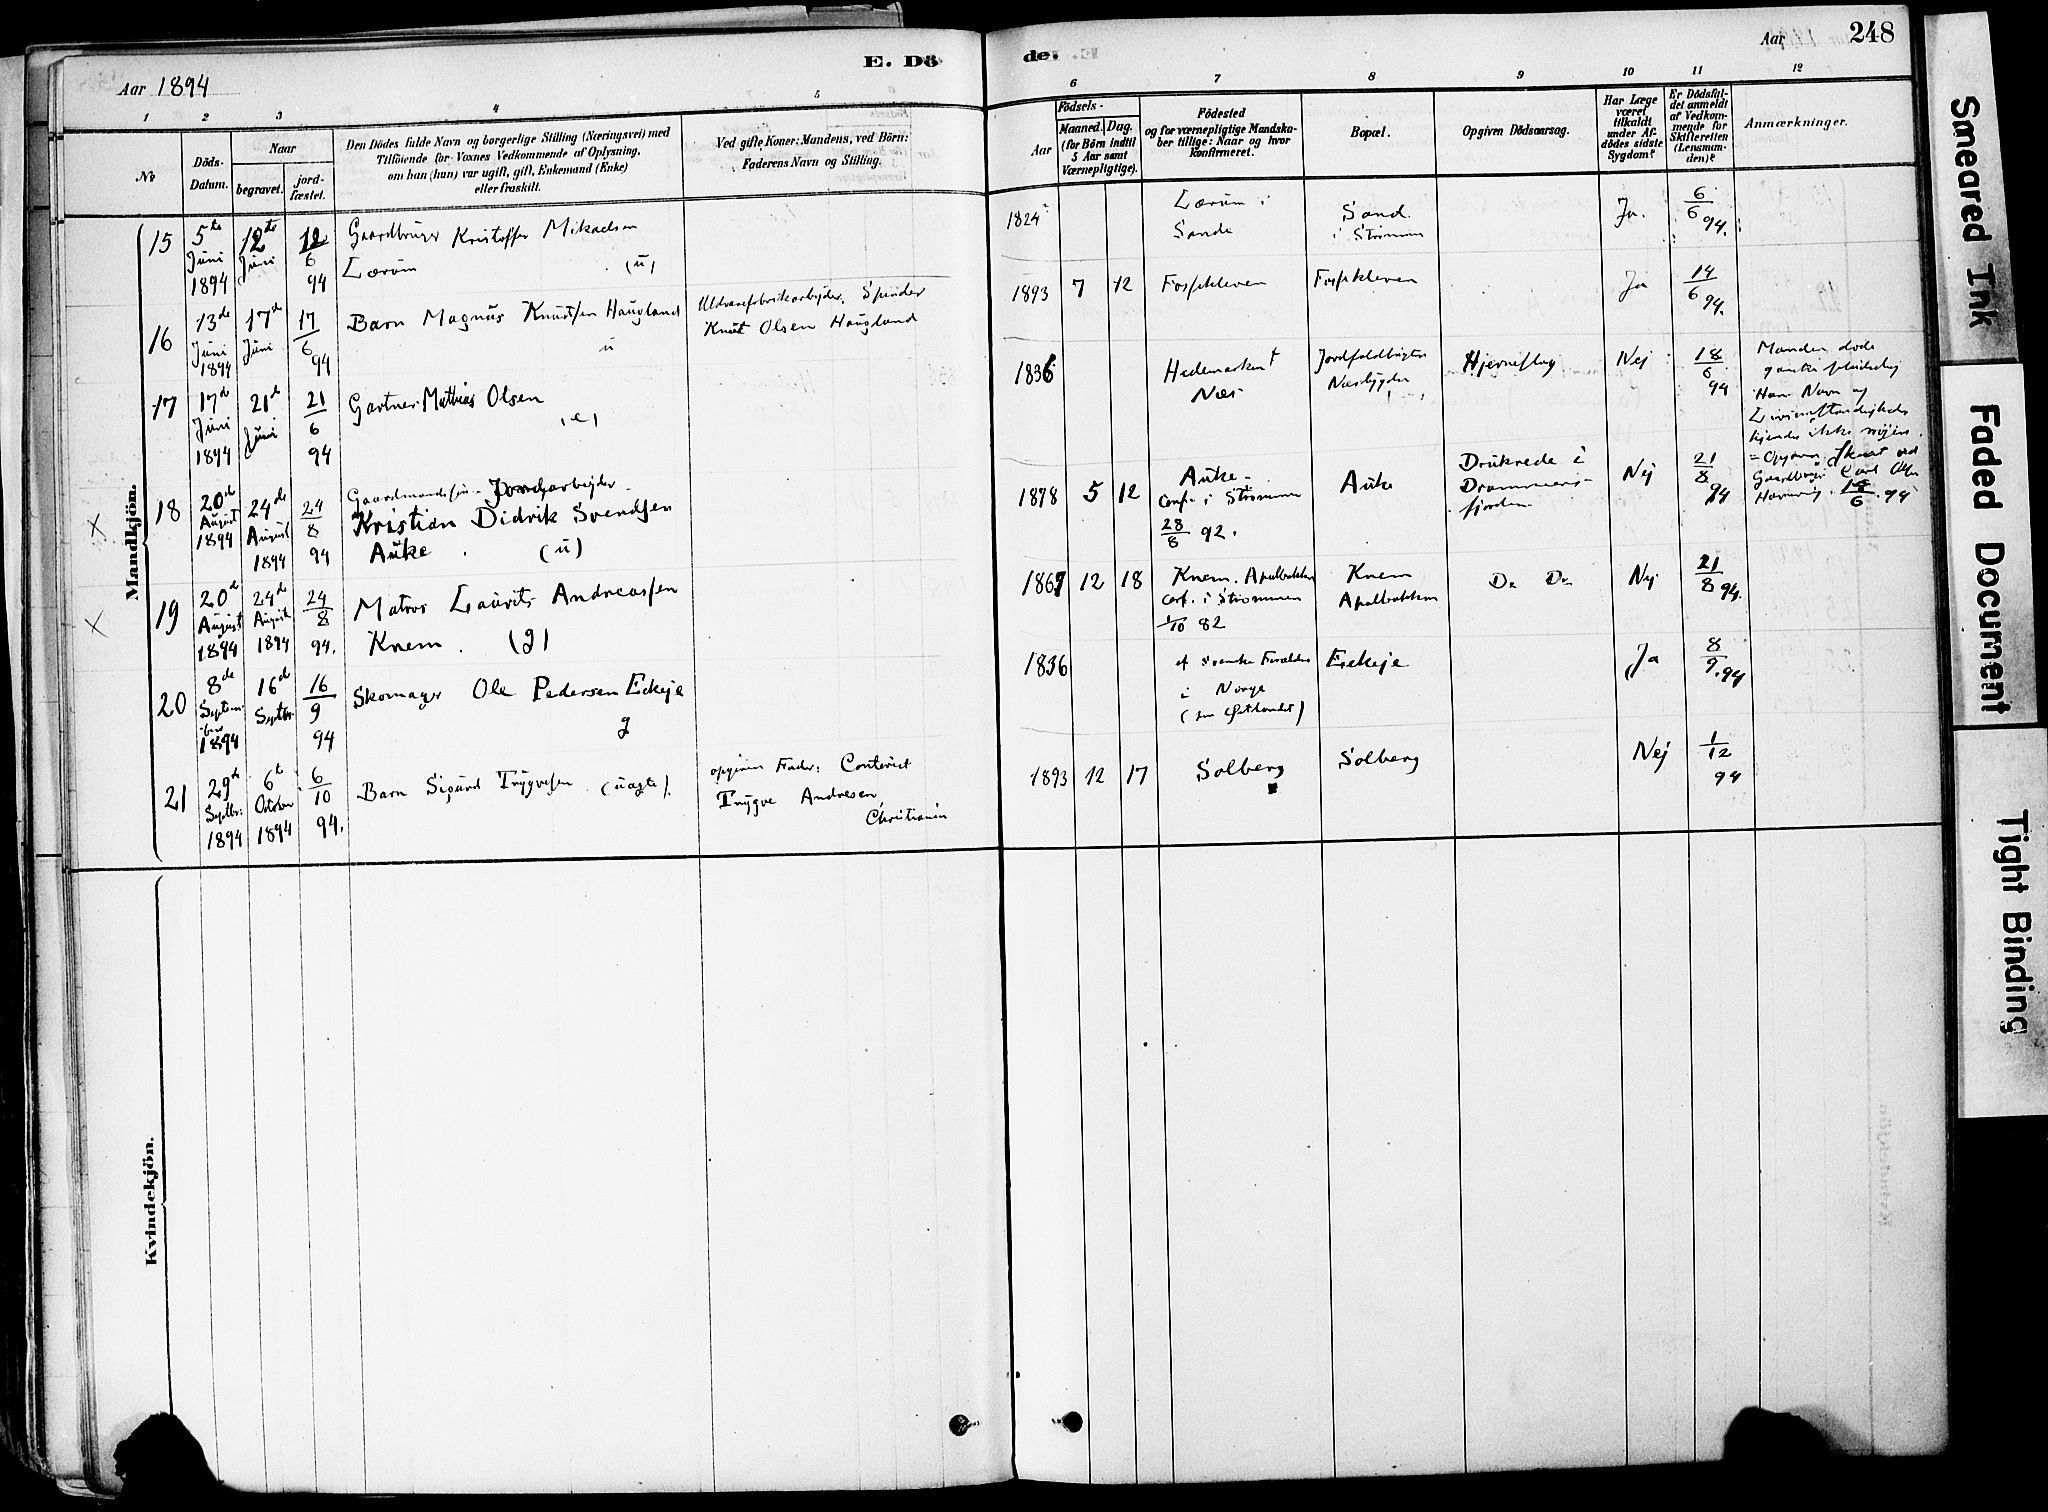 E. Dö
Aar 1894
1 2 3 4 5
No
Döds-
Datum.
Naar
begravet.
jord-
fæstet.
Den Dödes fulde Navn og borgerlige Stilling (Næringsvei) med
Tilföiende for Voxnes Vedkommende af Oplysning,
om han (hun) var ugift, gift, Enkemand (Enke)
eller fraskilt.
Ved gifte Koner: Mandens, ved Börn:
Faderens Navn og Stilling.
Mandkjön.
15
5te
Juni
1894
12te
Juni
12
6
94
Gaardbruger Kristoffer Mikaelsen
Lærum (u)
16
13de
Juni
1894
17de
Juni
17
6
94
Barn Magnus Knudsen Haugland
u
Spinder
Knut Olsen Haugland
17
17de
Juni
1894
21de
Juni
21
6
94
Gartner Mathias Olsen
(e)
x
18
20de
August
1894
24de
August
1894
24
8
94
Gaardmandssøn Jordarbejder
Kristian Didrik Svendsen
Auke. (u)
x
19
20de
August
1894
24de
August
1894
24
8
94.
Matros Laurits Andreassen
Knem. (g)
20
8de
Septem-
ber
1894
16de
Septbr.
16
9
94
Skomager Ole Pedersen Eekeje
g
21
29de
Septbr.
1894
6te
October
1894
6
10
94.
Barn Sigurd Trygvesen (uægte)
opgiven Fader: Contorist
Trygve Andresen
Christiania
Kvindekjön.
de.
Aar 248
6 7 8 9 10 11 12
Födsels-
Aar
Maaned. Dag.
(for Börn indtil
5 Aar samt
Værnepligtige).
Födested
og for værnepligtige Mandska-
ber tillige: Naar og hvor
konfirmeret.
Bopæl.
Opgiven Dödsaarsag.
Har Læge
været
tilkaldt
under Af-
dödes sidste
Sygdom?
Er Dödsfal-
det anmeldt
af Vedkom-
mende for
Skifteretten
(Lensman-
den)?
Anmærkninger.
1824
Lærum i
Sande
Sand
i Strømm
Ja.
6
6 94.
1893 7 12
Fossekleven
Fossekleven
Ja
14
6 94.
1836
Hedemarken
Næs
Nesbygden
Hjerneslag
Nej
18
6
94
Manden døde
ganske pludselig
Hans Navn og
kjendes ikke nøjere.
1878 5 12
Auke.
Conf. i Strømmen
28
8 92.
Auke
Druknede i
Drammens-
fjorden
Nej
21
8
94
1867 12 18
Knem. Apalbakken
conf. i Strømmen
1/10 82
Knem
Apalbakken
Do Do
Nej
21
8 94.
1836
af svenske Forældre
i Norge
Eekeje
Ja
8
9. 94
1893 12 17
Solberg
Solberg
Nej
1
12
94
Smeared Ink
Faded Document
Tight Binding